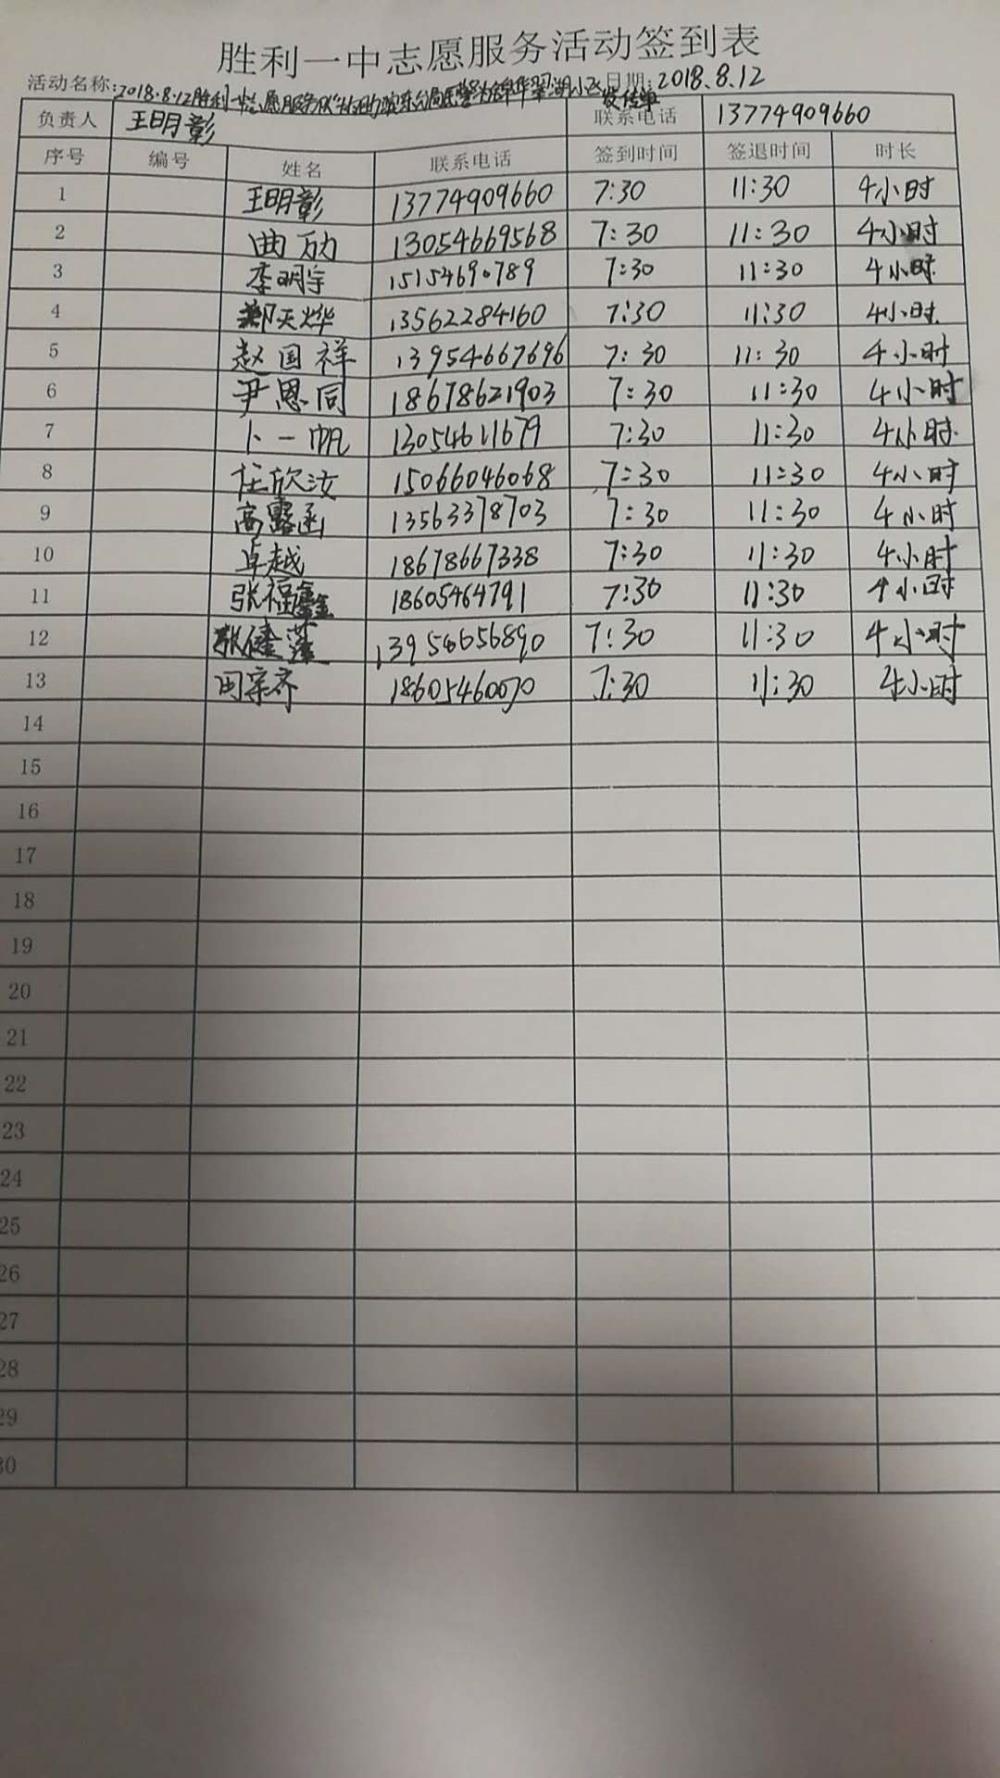 胜利一中志愿服务活动签到表
活动名称:2018.8.12胜利一中志愿服务队 日期:2018.8.12
发传单
负责人 王明彰 联系电话 13774909660
序号 编号 姓名 联系电话 签到时间 签退时间 时长
1 王明彰 13774909660 7:30 11:30 4小时
2 曲劢 13054669568 7:30 11:30 4小时
3 李明宇 15154690789 7:30 11:30 4小时
4 郑天烨 13562284160 7:30 11:30 4小时
5 赵国祥 13954667696 7:30 11:30 4小时
6 尹恩同 18678621903 7:30 11:30 4小时
7 卜一帆 13054611679 7:30 11:30 4小时
8 任欣汝 15066046068 7:30 11:30 4小时
9 高露函 13563378703 7:30 11:30 4小时
10 卓越 18678667338 7:30 11:30 4小时
11 张福鑫 18605464791 7:30 11:30 4小时
12 张 13954656890 7:30 11:30 4小时
13 田宗齐 18605460070 7:30 11:30 4小时
14
15
16
17
18
19
20
21
22
23
24
25
26
27
28
29
30